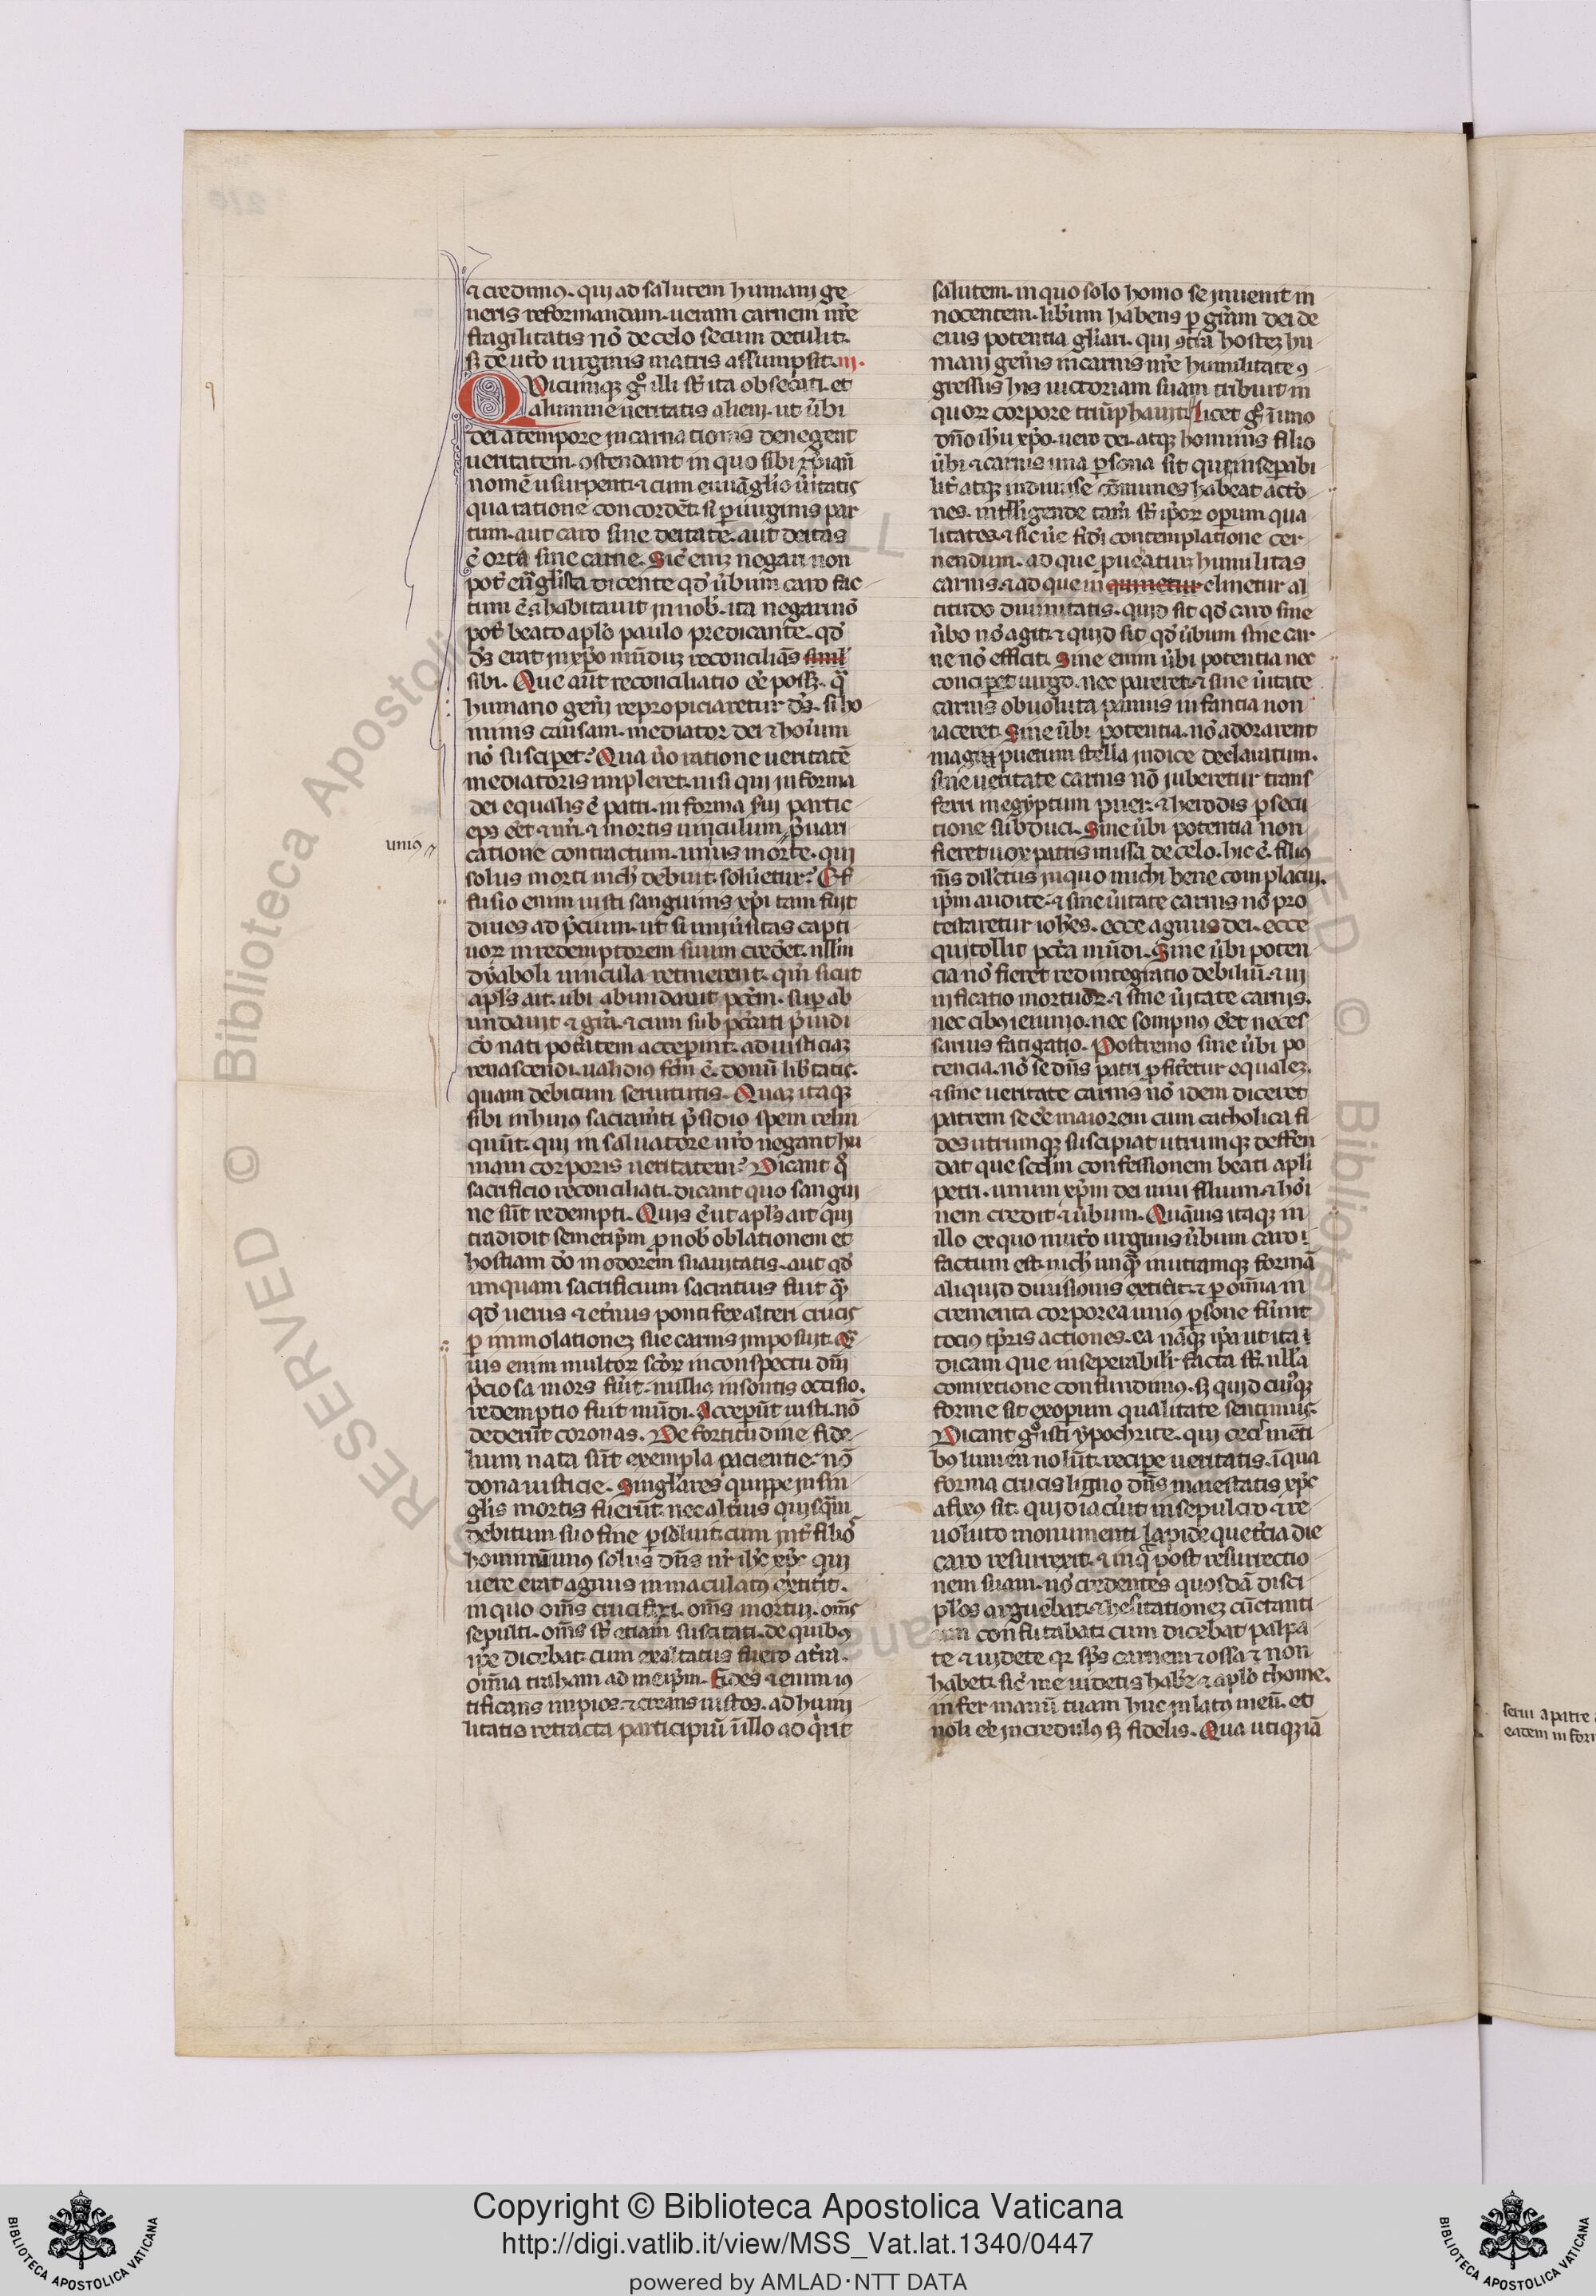 ⁊ credimus. qui ad salutem humani ge
neris reformandam. ueram carnem nr̄e
fragilitatis nō de celo secum detulit.
sꝫ de utō uirginis matris assumpsit. iij.
Dicumqꝫ gͦ illi st̄ ita obsecati. et
a lumine ueritatis alieni. ut ūbi
dei a tempore incarnationis denegent
ueritatem. ostendant in quo sibi xp̄ian̄
nomē usurpent. ⁊ cum euuāgl̄io ūitatis
qua ratione concordēt. si ꝑ uirginis par
tum. aut caro sine deitate. aut deitas
ē orta sine carne. Sic̄ enīꝫ negari non
pot̄ eūgl̄ista dicente qd̄ ūbum caro fac
tum ē ⁊ habitauit in nob̄. ita negari nō
pot̄ beato apl̄o paulo predicante. qd̄
ds̄ erat in xp̄o mūduꝫ reconciliās simil̄
sibi. Que aūt reconciliatio eē possꝫ. qͣ
humano gen̄i repropiciaretur ds̄. si ho
minis causam. mediator dei ⁊ hoīum
nō suscip̄et? Qua ūo ratione ueritatē
mediatoris impleret. nisi qui in forma
dei equalis ē patri. in forma sui partic
eps eēt ⁊ nr̄i. ⁊ mortis uinculum p̄uari
unius
catione contractum. unius morte. qui
solus morti nich̄ debuit. solūetur? Ef
fusio enim iusti sanguinis xp̄i tam fuit
diues ad p̄cium. ut si uniūsitas capti
uoꝝ in redemptorem suum cred̄et. nll̄m
dyaboli uincula retinerent. qm̄ sicut
apl̄s ait. ubi abundauit pcc̄m. suꝑ ab
undauit ⁊ gr̄a. ⁊ cum sub pcc̄ati p̄iudi
cō nati potātem acceperint. ad iusticiaꝫ
renascendi. ualidius fc̄m ē. donū lib̄tatis.
quam debitum seruitutis. Quaꝫ itaqꝫ
sibi in huius sacramn̄ti p̄sidio spem relin
quūt. qui in saluatore nr̄o negant hu
mani corporis ueritatem? Dicant qͦ
sacrificio reconciliati. dicant quo sangui
ne sūt redempti. Quis ē ut apl̄s ait qui
tradidit semetip̄m ꝓ nob̄ oblationem et
hostiam dō in odorem suauitatis. aut qd̄
unquam sacrificium sacratius fuit qͣ
qd̄ uerus ⁊ et̄nus pontifex alteri crucis
ꝑ immolationeꝫ sue carnis imposuit. Qͣ
uis enim multoꝝ scōꝝ in conspectu dn̄i
p̄ciosa mors fūit. nullius insontis occisio.
redemptio fuit mūdi. Acceperūt iusti. nō
dederūt coronas. De fortitudine fide
lium nata sūt exempla pacientie. nō
dona iusticie. Singl̄ares quippe in sin
gl̄is mortis fuerūt. nec alt̄ius quisqͣm
debitum suo fine ꝑsoluit. cum int̄ filios
hominum unus solus dn̄s nr̄ ih̄c xp̄c qui
uere erat agnus inmaculatus extitit.
in quo om̄s crucifixi. om̄s mortui. om̄s
sepulti. om̄s st̄ etiam suscitati. de quibus
ip̄e dicebat. cum exaltatus fuero a tr̄a.
om̄ia traham ad meip̄m. Fides ⁊ enim ius
tificans impios. ⁊ creans iustos. ad humi
litatis retracta participiū ī illo adq̄rit
salutem. in quo solo homo se inuenit in
nocentem. lib̄um habens ꝑ gr̄am dei de
eius potentia gl̄iari. qui ꝯtra hosteꝫ hu
mani gen̄is in carnis nr̄e humilitate ꝯ
gressus his uictoriam suam tribuit in
quoꝝ corpore triūphauit. Licet gͦ ī uno
dn̄o ih̄u xp̄o. uero dei. atqꝫ hominis filio
ūbi ⁊ carnis una ꝑsona sit. que inseꝑabi
lit̄ atqꝫ indiuise cōmunes habeat actō
nes. intell̄igende tam̄ st̄ ip̄oꝝ oꝑum qua
litates. ⁊ sinc̄e fidei contemplatione cer
nendum. ad que pueatur humilitas
carnis. ⁊ ad que in quinetur clinetur al
titudo diuinitatis. quid sit qd̄ caro sine
ūbo nō agit. ⁊ quid sit qd̄ ūbum sine car
ne nō efficit. Sine enim ūbi potentia nec
concip̄et uirgo. nec pareret. ⁊ sine ūitate
carnis obuoluta pannis infancia non
iaceret. Sine ūbi potentia. nō adorarent
magi puerum stella indice declaratum.
sine ueritate carnis nō iuberetur trans
ferri in egyptum puer. ⁊ herodis ꝑsecu
tione subduci. Sine ūbi potentia non
fieret uox patris missa de celo. hic ē. filius
m̄s dil̄ctus in quo michi bene complacui.
ip̄m audite. ⁊ sine ūitate carnis nō pro
testaretur ioh̄es. ecce agnus dei. ecce
qui tollit pcc̄a mūdi. Sine ūbi poten
cia nō fieret redintegratio debiliū. ⁊ ui
uificatio mortuoꝝ. ⁊ sine ūitate carnis.
nec cibus ieiunio. nec sompnus eēt neces
sarius fatigatio. Postremo sine ūbi po
tencia. nō se dn̄s patri ꝓfit̄etur equaleꝫ.
⁊ sine ueritate carnis nō idem diceret
patrem se eē maiorem cum catholica fi
des utrumqꝫ suscipiat utrumqꝫ deffen
dat que scd̄m confessionem beati apl̄i
petri. unum xp̄m dei uiui filium. ⁊ hoī
nem credit ⁊ ūbum. Quāuis itaqꝫ in
illo ex quo in utō uirginis ūbum caro
factum est. nich̄ unqͣ int̄ utramqꝫ formā
aliquid diuisionis extitit. ⁊ ꝑ om̄ia in
crementa corporea unius ꝑsone fūint
tocius tp̄ris actiones. ea nāqꝫ ip̄a ut ita
dicam que inseperabilit̄ facta st̄. nll̄a
comixtione confundimus. sꝫ quid cuiusqꝫ
forme sit ex oꝑum qualitate sentimus.
Dicant gͦ isti ypochrite. qui cecis mēti
bus lumen nolūt. recipe ueritatis. ī qua
forma crucis ligno dn̄s maiestatis xp̄c
afixus sit. quid iacūit in sepulcro ⁊ re
uoluto monumenti lapide que t̄cia die
caro resurrexit. ⁊ in qͣ post resurrectio
nem suam. nō credentes quosdā disci
pl̄os arguebat. ⁊ hesitationeꝫ cūctanti
um confutabat. cum dicebat palpa
te ⁊ uidete qꝛ sp̄s carnem ⁊ ossa ⁊ non
habet. sic̄ me uidetis hab̄e ⁊ apl̄o thome.
infer manū tuam huc in latus meū. et
noli eē incredulus sꝫ fidelis. Qua utiqꝫ iā
serui a patre
eadem in for
Copyright © Biblioteca Apostolica Vaticana
http://digi.vatlib.it/view/MSS_Vat.lat.1340/0447
powered by AMLAD·NTT DATA
BIBLIOTECA APOSTOLICA VATICANA
BIBLIOTECA APOSTOLICA VATICANA